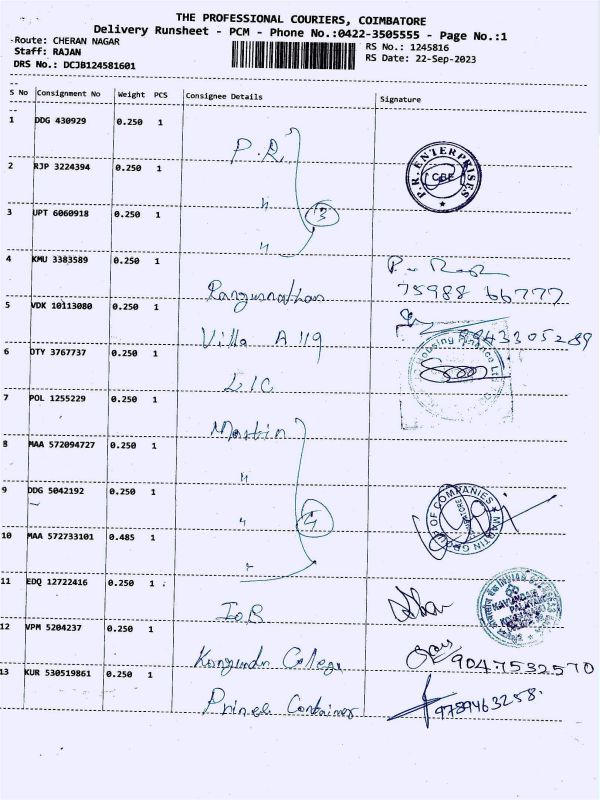 THE PROFESSIONAL COURIERS, COIMBATORE
Delivery Runsheet - PCM - Phone No.:0422-3505555 - Page No.:1
Route: CHERAN NAGAR
RS No.: 1245816
Staff: RAJAN
RS Date: 22-Sep-2023
DRS No.: DCJB124581601
S No Consignment No Weight PCS Consignee Details Signature
1 DDG 430929 0.250 1 P.R
P.R. ENTERPRISES CBE
2 RJP 3224394 0.250 1 "
3 UPT 6060918 0.250 1 " 3
4 KMU 3383589 0.250 1 Rangunathan
75988 66777
5 VDK 10113080 0.250 1 Villa A 119
9943305289
6 DTY 3767737 0.250 1 L I C
Housing Finance Ltd
7 POL 1255229 0.250 1 Martin
8 MAA 572094727 0.250 1 "
9 DDG 5042192 0.250 1 " 4
MARTIN GROUP OF COMPANIES
10 MAA 572733101 0.485 1 "
11 EDQ 12722416 0.250 1 I O B
INDIAN OVERSEAS
12 VPM 5204237 0.250 1 Kongundu College
9047532570
13 KUR 530519861 0.250 1 Prince Container
9789463258.